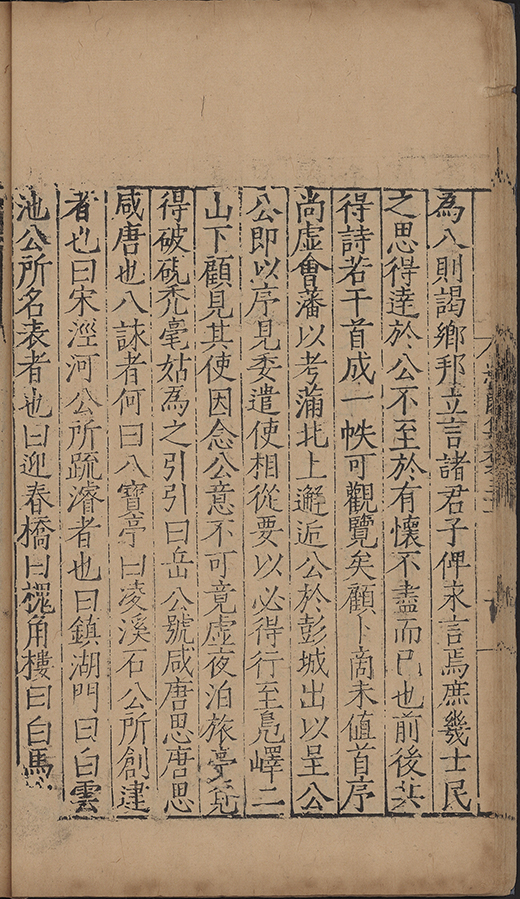 為八則謁鄉邦立言諸君子俾永言焉庶幾士民
之思得達於公不至於有懷不盡而已也前後共
得詩若干首成一帙可觀覽矣顧卜商未值首序
尚虛會藩以考滿北上邂逅公於彭城出以呈公
公即以序見委遣使相從要以必得行至鳧嶧二
山下顧見其使因念公意不可竟虛夜泊旅亭覓
得破硯禿毫姑為之引引曰岳公號咸唐思唐思
咸唐也八詠者何曰八寶亭曰凌溪石公所創建
者也曰宋涇河公所疏濬者也曰鎮湖門曰白雲
池公所名表者也曰迎春橋曰槐角樓曰白馬